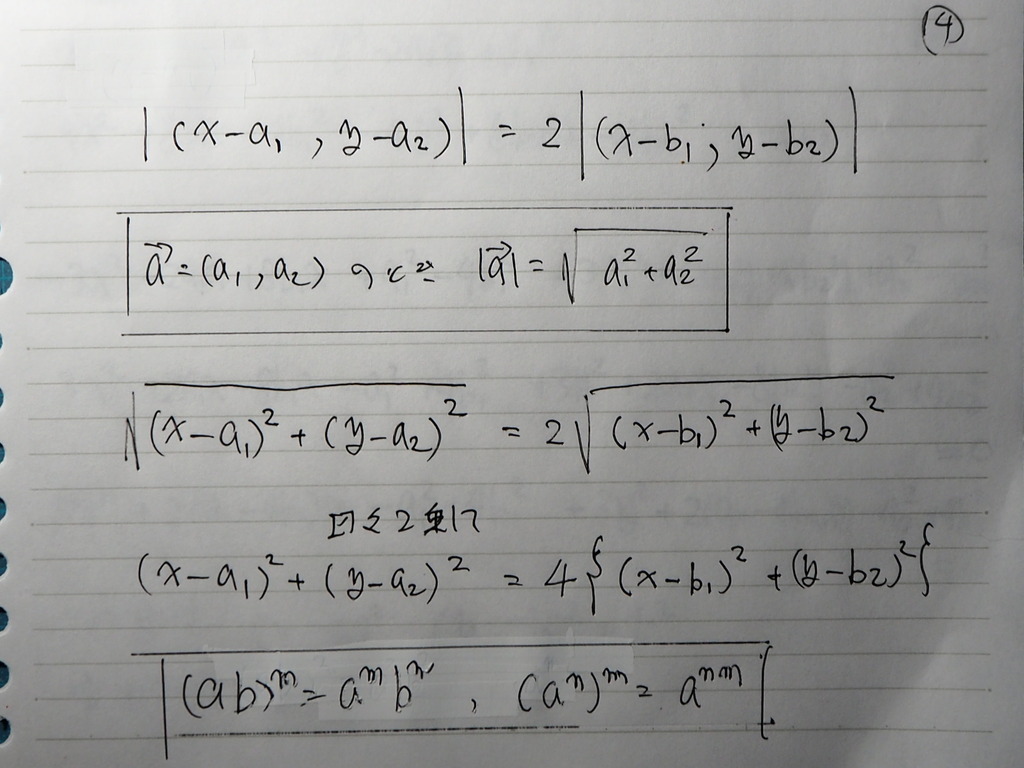 (4)
|(x-a₁, y-a₂)| = 2|(x-b₁, y-b₂)|
a⃗=(a₁, a₂) のとき |a⃗| = √(a₁²+a₂²)
√((x-a₁)²+(y-a₂)²) = 2√((x-b₁)²+(y-b₂)²)
2乗して
(x-a₁)²+(y-a₂)² = 4{(x-b₁)²+(y-b₂)²}
(ab)ᵐ=aᵐbᵐ, (aⁿ)ᵐ=aⁿᵐ